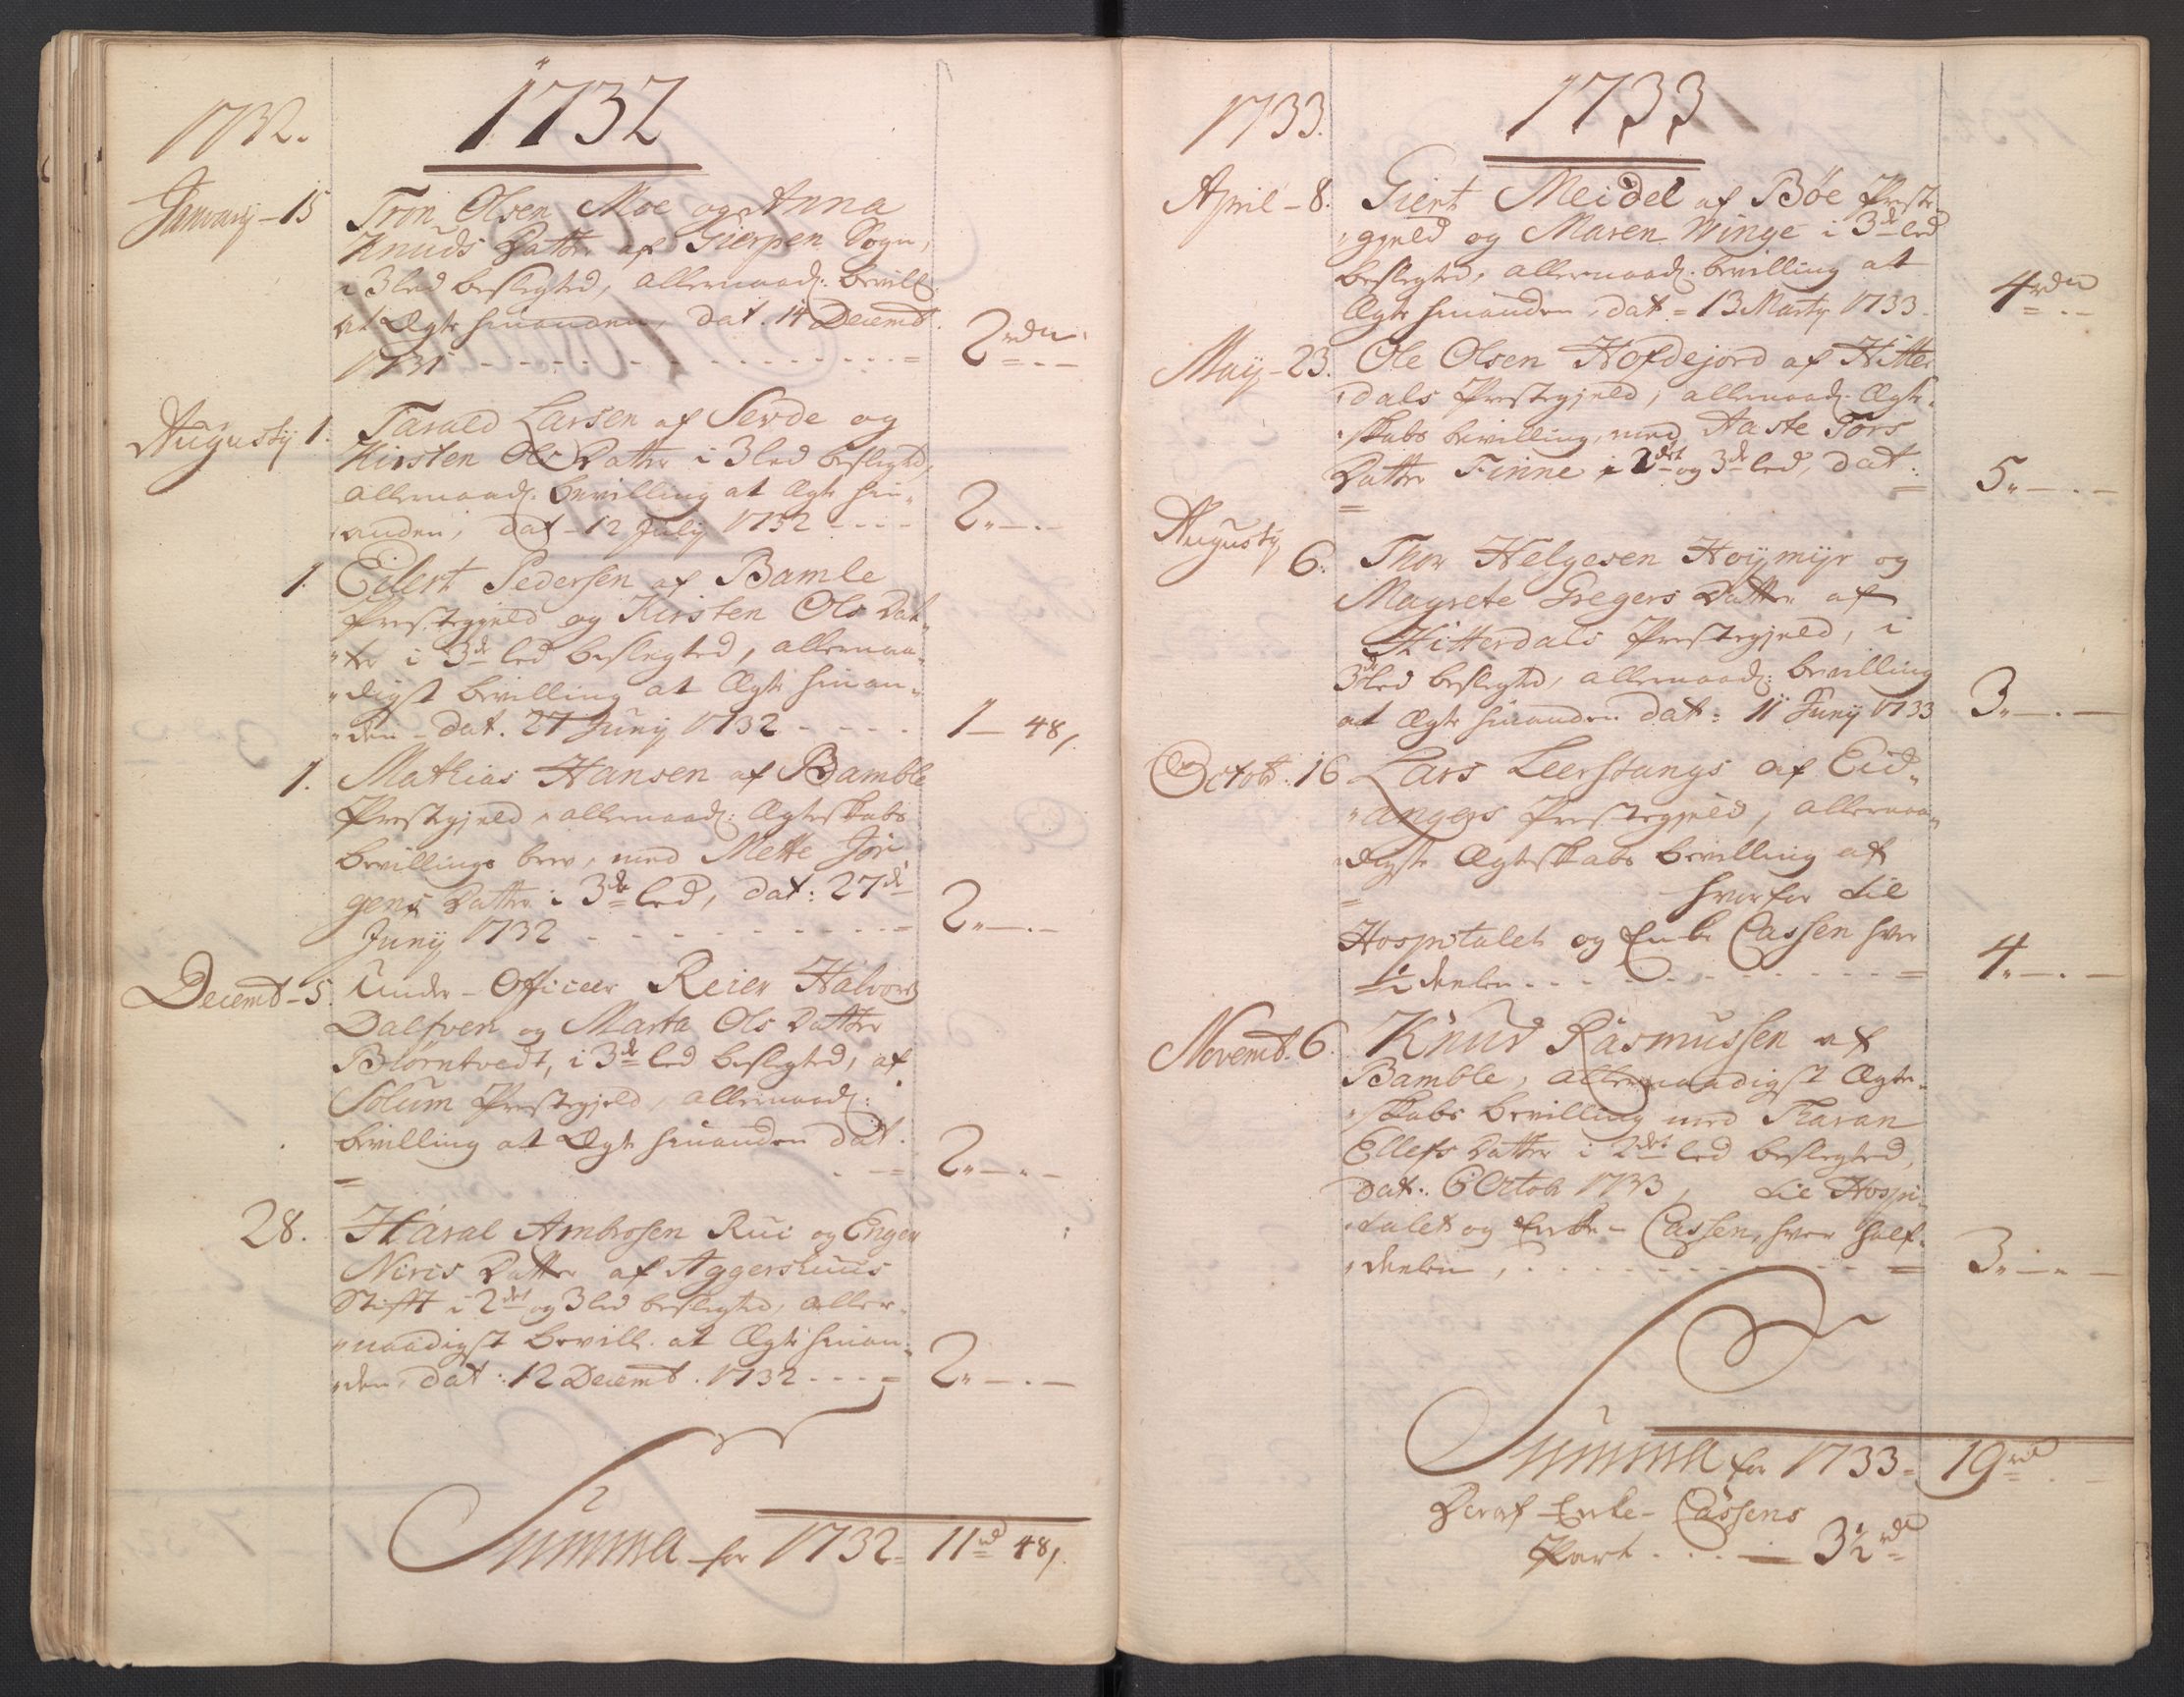 1732
1732.
January - 15
Tron Olsen Moe og Anna
Knuds Datter af Gierpen Sogn,
i 3 led beslegted, allernaad: bevill:
at Ægte hinanden, dat. 14 Decemb.
1731 - - - - - - - - = 2 rdr.
Augusty 1.
Tarald Larsen af Serde og
Kirsten Ols Datter i 3 led beslegted,
allernaad: bevilling at Ægte hin-
anden, dat - 12 July 1732 - - - - 2. - . -
1. Eilert Pedersen af Bamle
Prestegjeld og Kirsten Ols Dat-
ter i 3de led beslegted, allernaa-
digst bevilling at Ægte hinan-
den - dat. 27 Juny 1732 - - - - 1 - 48,
1. Mathias Hansen af Bamble
Prestegjeld, allernaad: Ægteskabs
bevillings brev, med Mette Jør-
gens Datter i 3de led, dat: 27de
Juny 1732 - - - - - - - = 2. - . -
Decemb - 5.
Under-Officeer Reier Halvors
Dalsven og Marta Ols Datter
Biørntvedt, i 3de led beslegted, af
Solum Prestegjeld, allernaad:
bevilling at Ægte hinanden dat.
= - = 2. - . -
28. Haral Ambrosen Rui og Enger
Niris Datter af Aggershuus
Stifft i 2det og 3 led beslegted, aller-
naadigst bevill. at Ægte hinan-
den, dat: 12 Decemb. 1732 - - - = 2. - . -
Summa for 1732 = 11 rd 48,
1733
1733.
April - 8.
Giert Meidel af Bøe Preste-
gjeld og Maren Winge i 3de led
beslegted, allernaad: bevilling at
Ægte hinanden, dat = 13 Marty 1733. 4 rdr
May - 23.
Ole Olsen Hofdejord af Hitter-
dals Prestegjeld, allernaad: Ægte-
skabs bevilling, med Aaste Tors
Datter Finne i 2det og 3de led, dat:
= = 5. - . -
Augusty
6. Thor Helgesen Hoymyr og
Magrete Gregers Datter af
Hitterdals Prestegjeld, i
3de led beslegted, allernaad: bevilling
at Ægte hinanden dat: 11 Juny 1733 3. - . -
Octob. 16
Lars Leerstangs af Eid-
angers Prestegjeld, allernaa-
digste Ægteskabs bevilling af
= hvorfor til
Hospitalet og Enke Cassen hver
1/2 deelen - - - - - - = 4. - . -
Novemb. 6.
Knud Rasmussen af
Bamble, allernaadigst Ægte-
skabs bevilling med Karan
Ellefs Datter i 2det led beslegted,
dat: 6 Octob 1733, til Hospi-
talet og Enke-Cassen, hver half-
deelen, - - - - - = 3. - . -
Summa for 1733 = 19 rd
Deraf Enke-Cassens
Part . . . - 3 1/2 rd